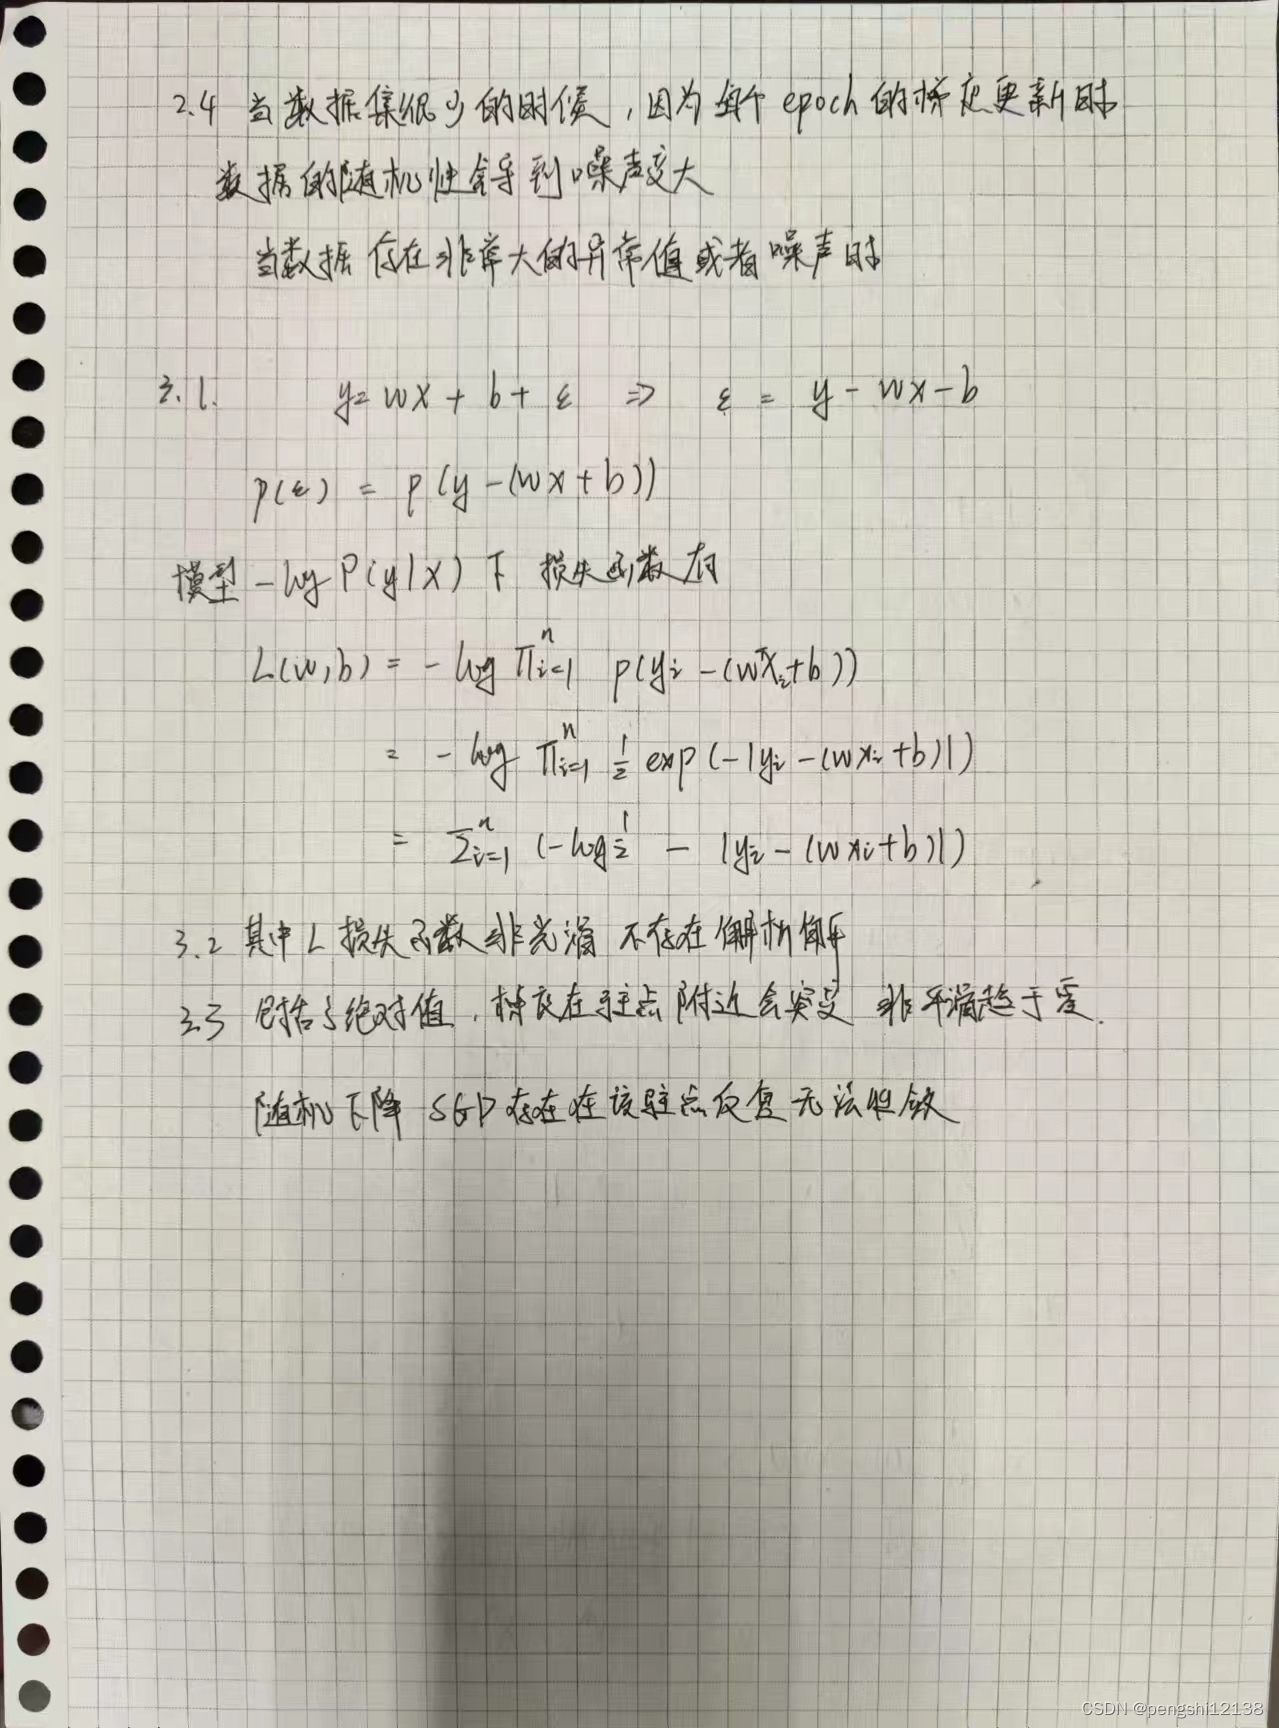 2.4 当数据集很少的时候，因为每个 epoch 的梯度更新时
数据的随机性会导到噪声变大
当数据存在非常大的异常值或者噪声时
3.1. y= wx + b + ε ⇒ ε = y - wx - b
p(ε) = p(y-(wx+b))
模型 -log P(y|x) 下 损失函数有
L(w,b) = - log ∏ⁿᵢ₌₁ p(yᵢ -(wᵀxᵢ+b))
= - log ∏ⁿᵢ₌₁ ½ exp(-|yᵢ -(wxᵢ+b)|)
= Σⁿᵢ₌₁ (-log½ - |yᵢ-(wxᵢ+b)|)
3.2 其中 L 损失函数非光滑 不存在解析解
3.3 包括了绝对值，梯度在驻点附近会突变 非平滑趋于零.
随机下降 SGD 存在在该驻点反复无法收敛
CSDN @pengshi12138